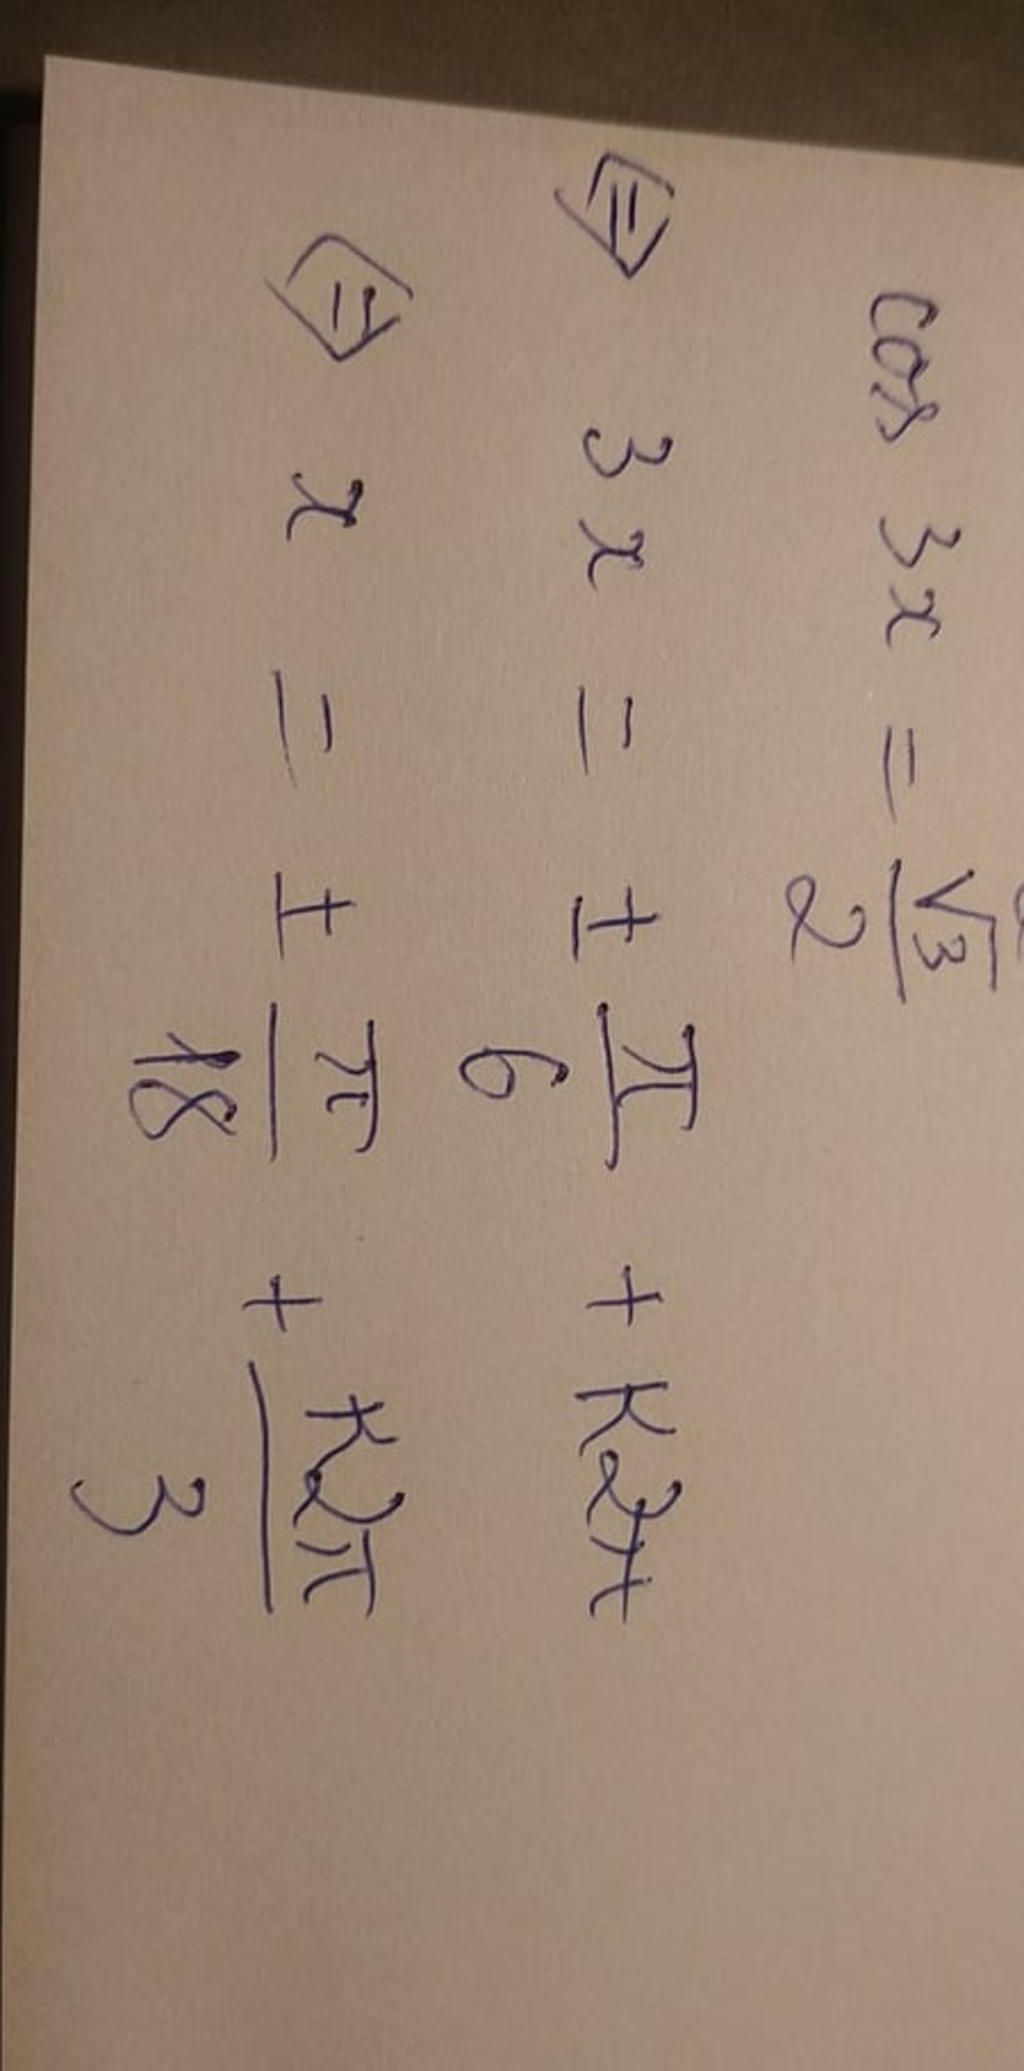 cos 3x = √3/2
⇔ 3x = ± π/6 + k2π
⇔ x = ± π/18 + k2π/3